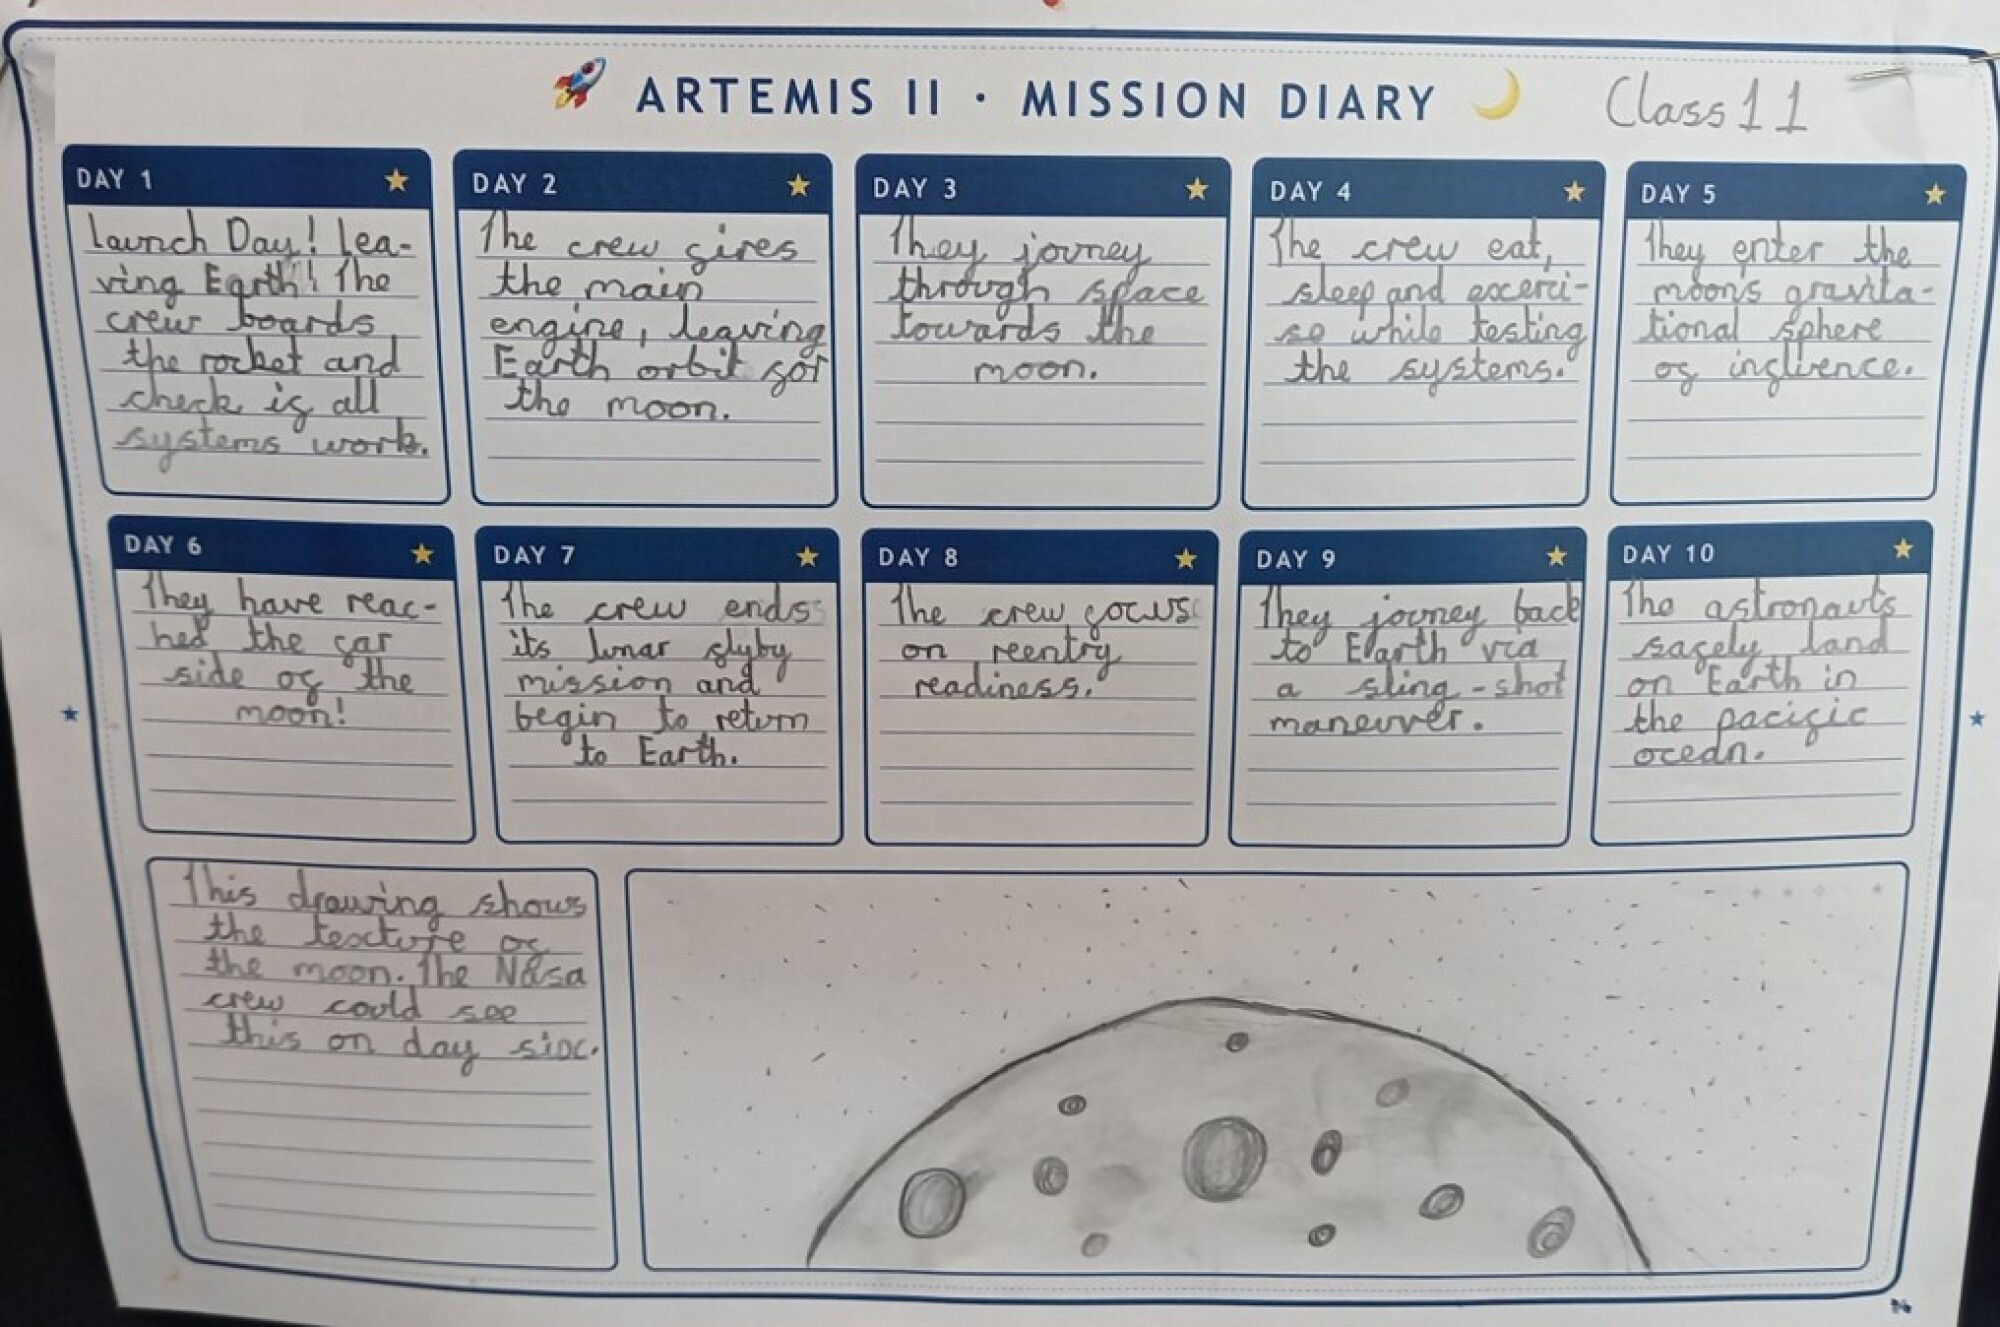 ARTEMIS II · MISSION DIARY
Class 11
DAY 1
Launch Day! Lea-
ving Earth! The
crew boards
the rocket and
check if all
systems work.
DAY 2
The crew fires
the main
engine, leaving
Earth orbit for
the moon.
DAY 3
They jouney
through space
towards the
moon.
DAY 4
The crew eat,
sleep and exerci-
se while testing
the systems.
DAY 5
They enter the
moon's gravita-
tional sphere
of influence.
DAY 6
They have reac-
hed the far
side of the
moon!
DAY 7
The crew ends
its lunar flyby
mission and
begin to return
to Earth.
DAY 8
The crew focus
on reentry
readiness.
DAY 9
They jouney back
to Earth via
a sling-shot
maneuver.
DAY 10
The astronauts
safely land
on Earth in
the pacific
ocean.
This drawing shows
the texture of
the moon. The Nasa
crew could see
this on day six.